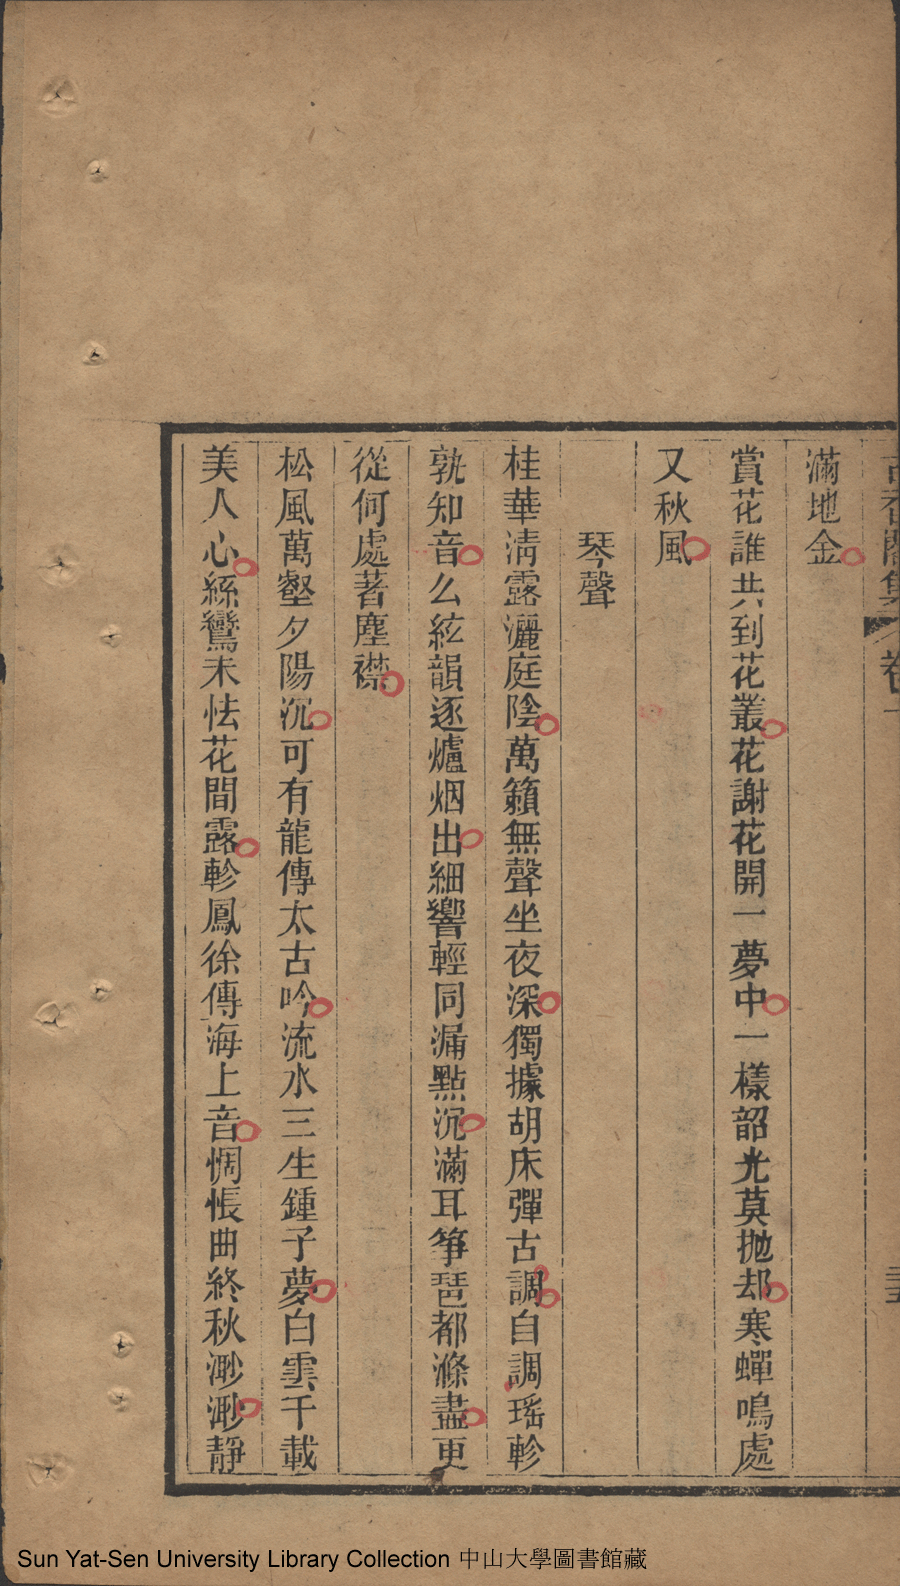 古香閣集 卷一
滿地金
賞花誰共到花叢花謝花開一夢中一樣韶光莫抛却寒蟬鳴處
又秋風
琴聲
桂華淸露灑庭陰萬籟無聲坐夜深獨據胡床彈古調自調瑤軫
孰知音么絃韻逐爐烟出細響輕同漏點沉滿耳筝琶都滌盡更
從何處著塵襟
松風萬壑夕陽沉可有龍傳太古吟流水三生鍾子夢白雲千載
美人心絲鸞未怯花間露軫鳳徐傳海上音惆悵曲終秋渺渺靜
Sun Yat-Sen University Library Collection 中山大學圖書館藏